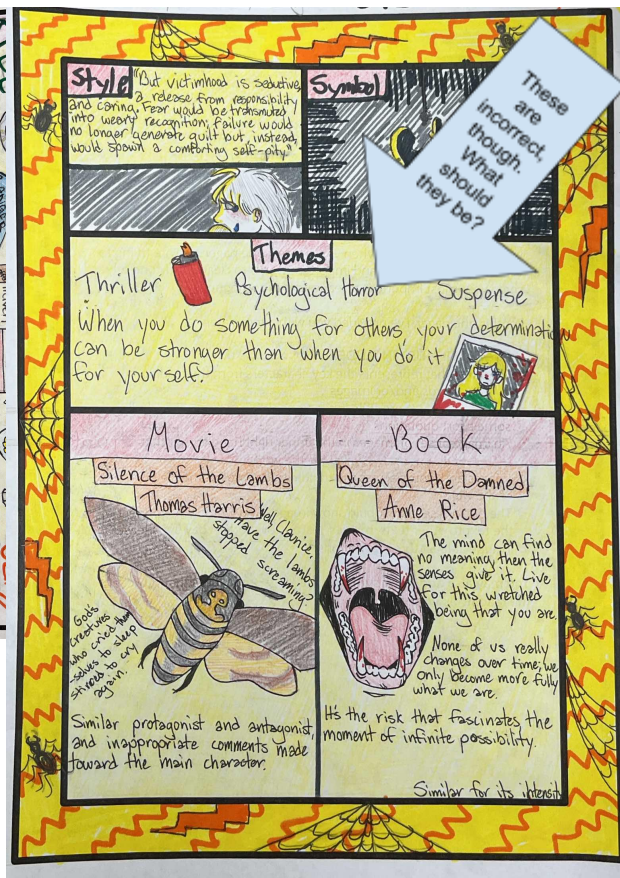 Style
"But victimhood is seductive,
a release from responsibility
and caring. Fear would be transmuted
into weary recognition; failure would
no longer generate guilt but, instead,
would spawn a comforting self-pity."
Symbol
These
are
incorrect,
though.
What
should
they be?
Themes
Thriller
Psychological Horror
Suspense
When you do something for others, your determination
can be stronger than when you do it
for yourself.
Movie
Silence of the Lambs
Thomas Harris
Well, Clarice,
have the lambs
stopped screaming?
God's
creatures
who cried them
-selves to sleep
stirred to cry
again.
Similar protagonist and antagonist,
and inappropriate comments made
toward the main character.
Book
Queen of the Damned
Anne Rice
The mind can find
no meaning then the
senses give it. Live
for this wretched
being that you are.
None of us really
changes over time; we
only become more fully
what we are.
It's the risk that fascinates the
moment of infinite possibility.
Similar for its intensit